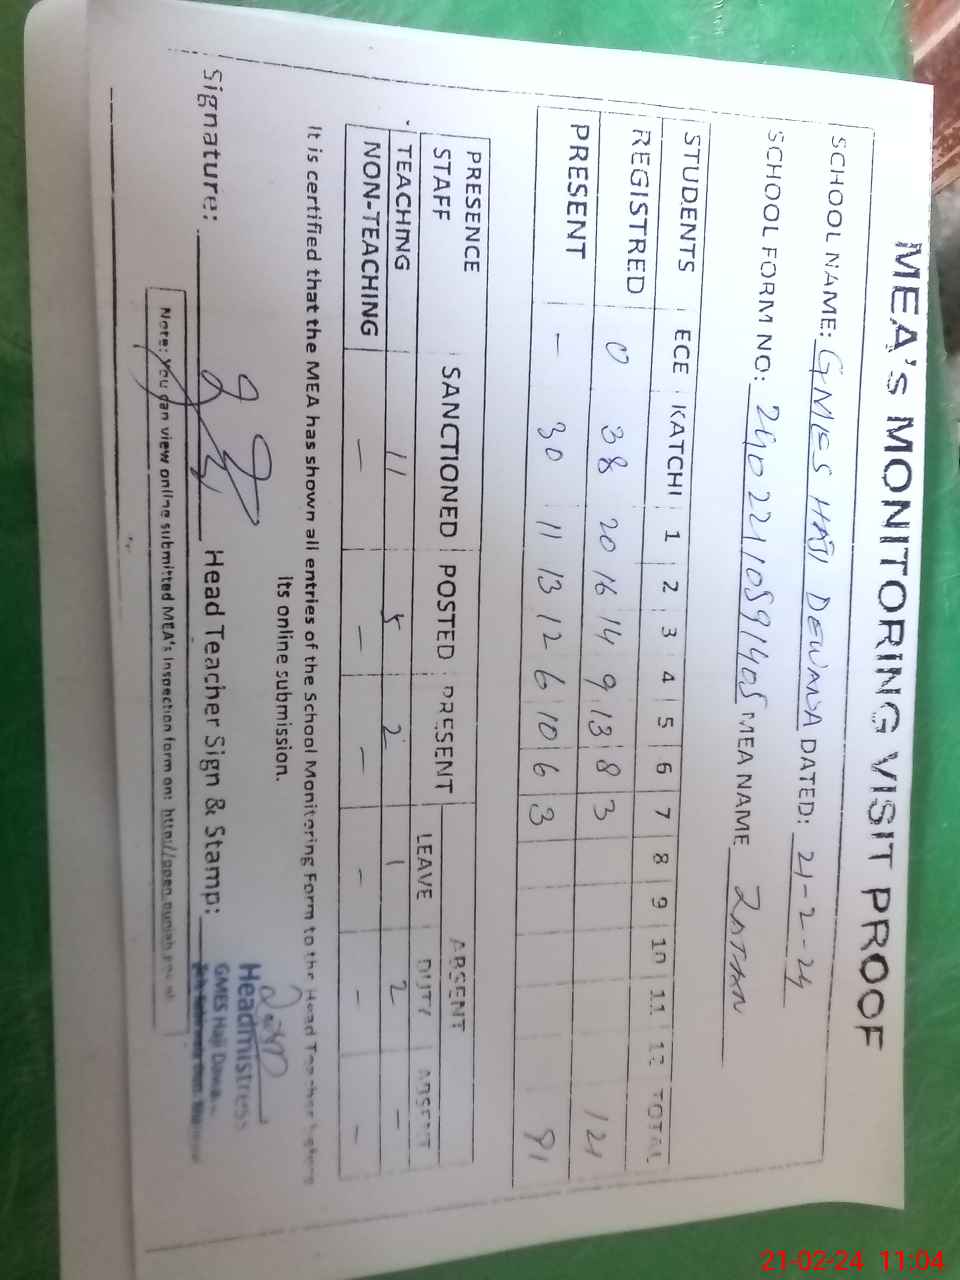 MEA's MONITORING VISIT PROOF
SCHOOL NAME: GMES HAJI DEWANA DATED: 21-2-24
SCHOOL FORM NO: MEA NAME
STUDENTS ECE KATCHI 1 2 3 4 5 6 7 8 9 10 11 12 TOTAL
REGISTRED 0 38 20 16 14 9 13 8 3 121
PRESENT - 30 11 13 12 6 10 6 3 91
PRESENCE ABSENT
STAFF SANCTIONED POSTED PRESENT LEAVE DUTY ABSENT
TEACHING 11 5 2 1 2 -
NON-TEACHING - - - - - -
It is certified that the MEA has shown all entries of the School Monitering Form to the Head Teacher before
its online submission.
Signature: Head Teacher Sign & Stamp:
Headmistress
GMES Haji
Note: You can view online submitted MEA's Inspection form on: http://open.punjab.gov.pk
21-02-24 11:04